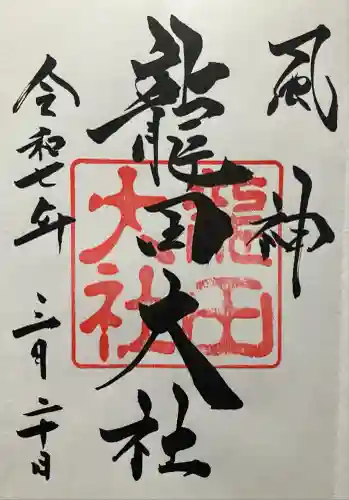 風神
龍田大社
龍田
大社
令和七年
三月二十日